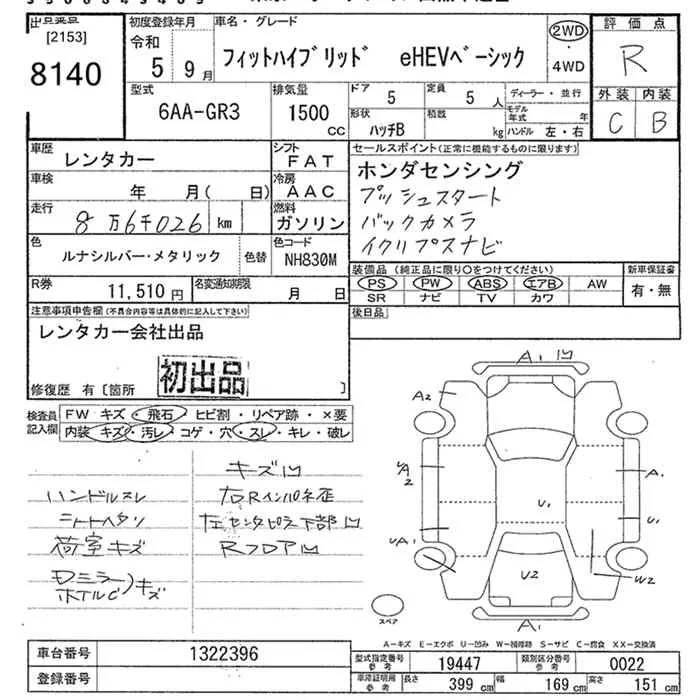 [2153]
8140
初度登録年月
令和
5年9月
車名・グレード
フィットハイブリッド eHEVベーシック
2WD
・
4WD
評価点
R
外装 内装
C B
型式
6AA-GR3
排気量
1500
CC
ドア 5
定員 5人
形状 ハッチB
積載 kg
ディーラー・並行
モデル年式 年
ハンドル 左・右
車歴
レンタカー
シフト
FAT
車検
年 月( 日)
冷房
AAC
走行
8万6千026 km
燃料
ガソリン
色
ルナシルバー・メタリック
色替
色コード
NH830M
R券
11,510円
名変通知期限
月 日
セールスポイント(正常に機能するものに限ります)
ホンダセンシング
プッシュスタート
バックカメラ
イクリプスナビ
装備品 (純正品に限り○をつけてください)
PS PW ABS エアB AW
SR ナビ TV カワ
新車保証書
有・無
後日品
注意事項申告欄(不具合内容等は具体的に記入して下さい)
レンタカー会社出品
初出品
修復歴 有〔箇所 〕
検査員
記入欄
FW キズ・飛石・ヒビ割・リペア跡・×要
内装 キズ・汚レ・コゲ・穴・スレ・キレ・破レ
ハンドルスレ
シートヘタリ
荷室キズ
Dミラー
ホイルC
キズ
キズ凹
右Rインパネ歪
左センタピラ下部凹
Rフロア凹
A1 凹
A2
A2
A1
U1
U1
A1
U2
W2
A1
スペア
A－キズ E－エクボ U－凹み W－補修跡 S－サビ C－腐食 XX－交換済
車台番号
1322396
登録番号
型式指定番号
参考
19447
類別区分番号
参考
0022
車庫証明用
参考
長さ 399 cm
幅 169 cm
高さ 151 cm